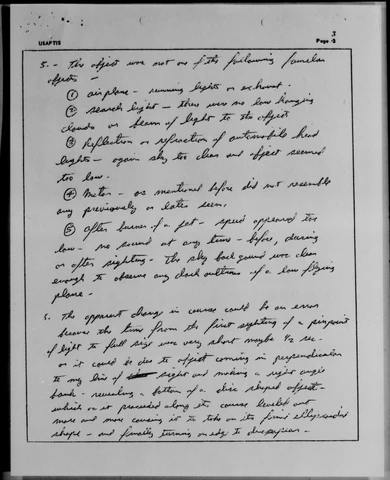 USAPTIS
3
Page 2
5. - This object was not one of the following familiar
objects -
① airplane - running lights or exhaust.
② search light - there were no low hanging
clouds or beam of light to the object
③ Reflection or refraction of automobile head
lights - again sky too clear and object seemed
too low.
④ Meteor - as mentioned before did not resemble
any previously or later seen.
⑤ After burner of a jet - speed appeared too
low - no sound at any time - before, during
or after sighting. The sky background was clear
enough to observe any dark outlines of a low flying
plane.
6. The apparent change in course could be an error
because the time from the first sighting of a pinpoint
of light to full size was very short maybe 1/2 sec -
or it could be due to object coming in perpendicular
to my line of sight and making a right angle
bank - revealing a bottom of a disc shaped object -
which as it proceeded along its course leveled out
more and more causing it to take on its final
shape - and finally turning on edge to